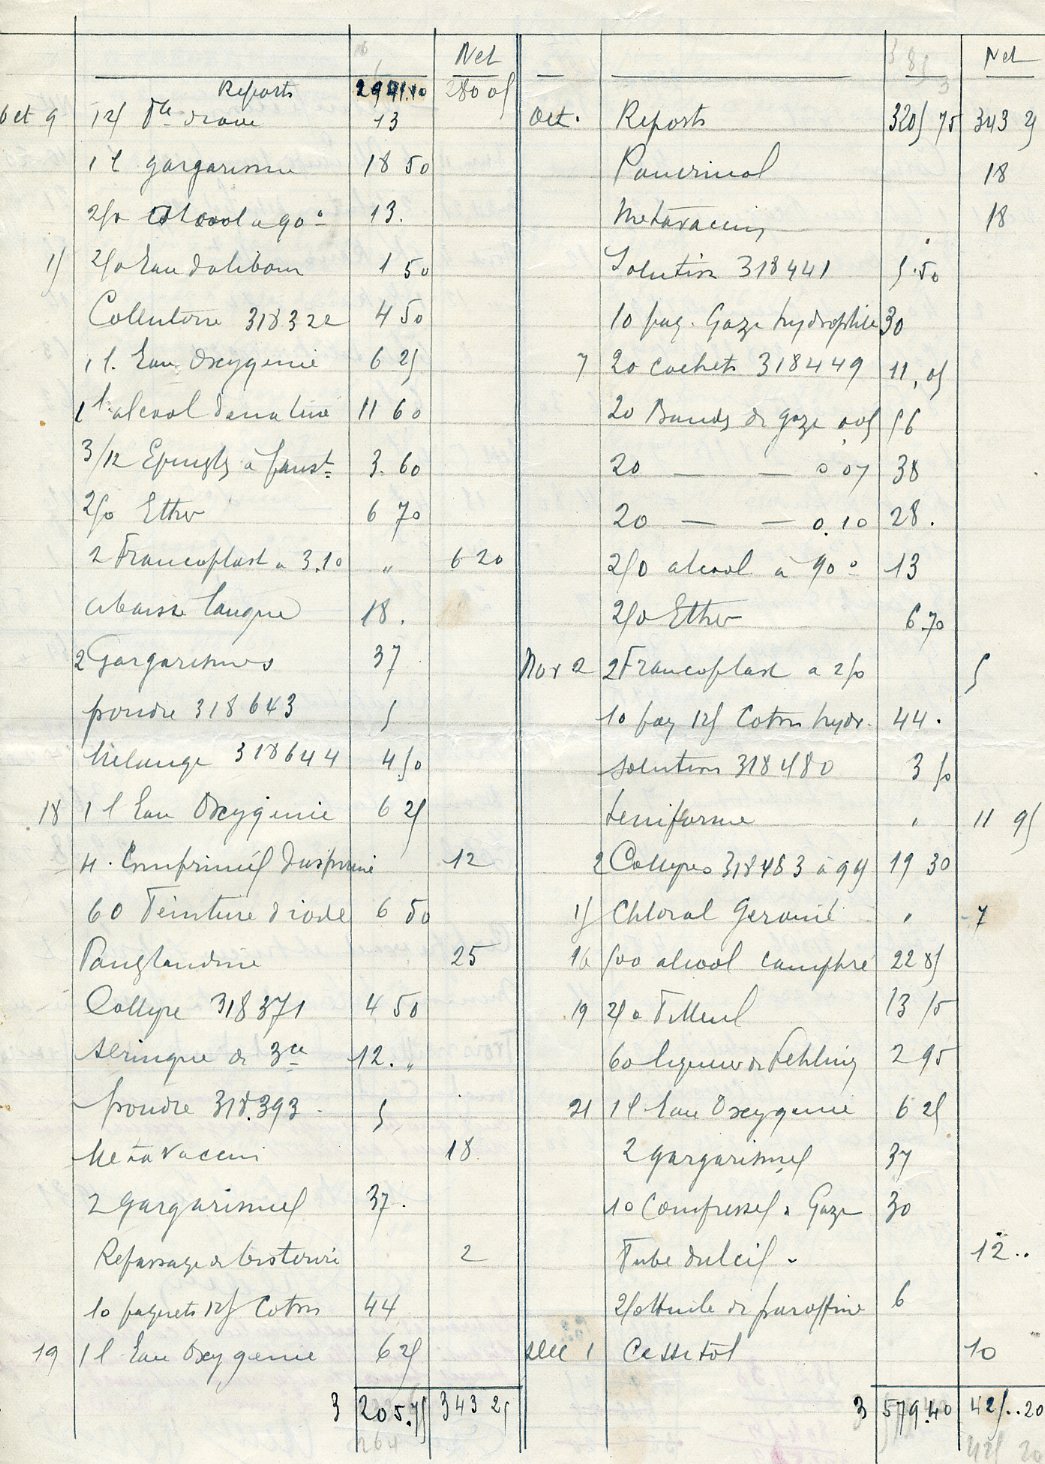 Net
Reports 2941.10 280 05
Oct 9 125 d'orine 13
1 l gargarisme 18 50
250 alcool a 90° 13.
15 250 Eau dalibour 1 50
Collutoire 318322 4 50
1 l. Eau Oxygenie 6 25
1 l. alcool denaturé 11 60
3/12 Epingles à 3.60
250 Ether 6 70
2 Francoplast a 3.10 „ 6 20
abaisse langue 18.
2 Gargarismes 37
poudre 318643 5
Mélange 318644 4 50
18 1 l Eau Oxygenie 6 25
H. Comprimés 12
60 Teinture d iode 6 50
Panglandine 25
Collyre 318371 4 50
Seringue de 3cc 12. „
poudre 318.393. 5
Metavaccin 18.
2 gargarismes 37.
Repassage de bistouri 2
10 paquets 125 Coton 44
19 1 l Eau Oxygenie 6 25
3 205.75 343 25
264
Net
Oct. Reports 3205 75 343 25
Pancrinol 18
Metavaccin 18
Solution 318441 5.50
10 paq. Gaze hydrophile 30
7 20 cachets 318449 11,05
20 Bandes de gaze 0.05 56
20 — — 0.07 38
20 — — 0.10 28.
250 alcool à 90° 13
250 Ether 6.70
Nov 2 2 Francoplast a 250 5
10 paq 125 Coton hydr. 44.
solution 318480 3 50
Leniforme 11 95
2 Collyres 318483 à 995 19 30
15 Chloral Geranié 7
16 500 alcool camphré 22 85
19 250 Tilleul 13 15
60 liqueur de Fehling 2 95
21 1 l Eau Oxygenie 6 25
2 gargarismes 37
10 Compresses Gaze 30
Tube dulcil. 12..
250 Huile de paraffine 6
Dec 1 Cessitol 10
3 579.40 425..20
425 20